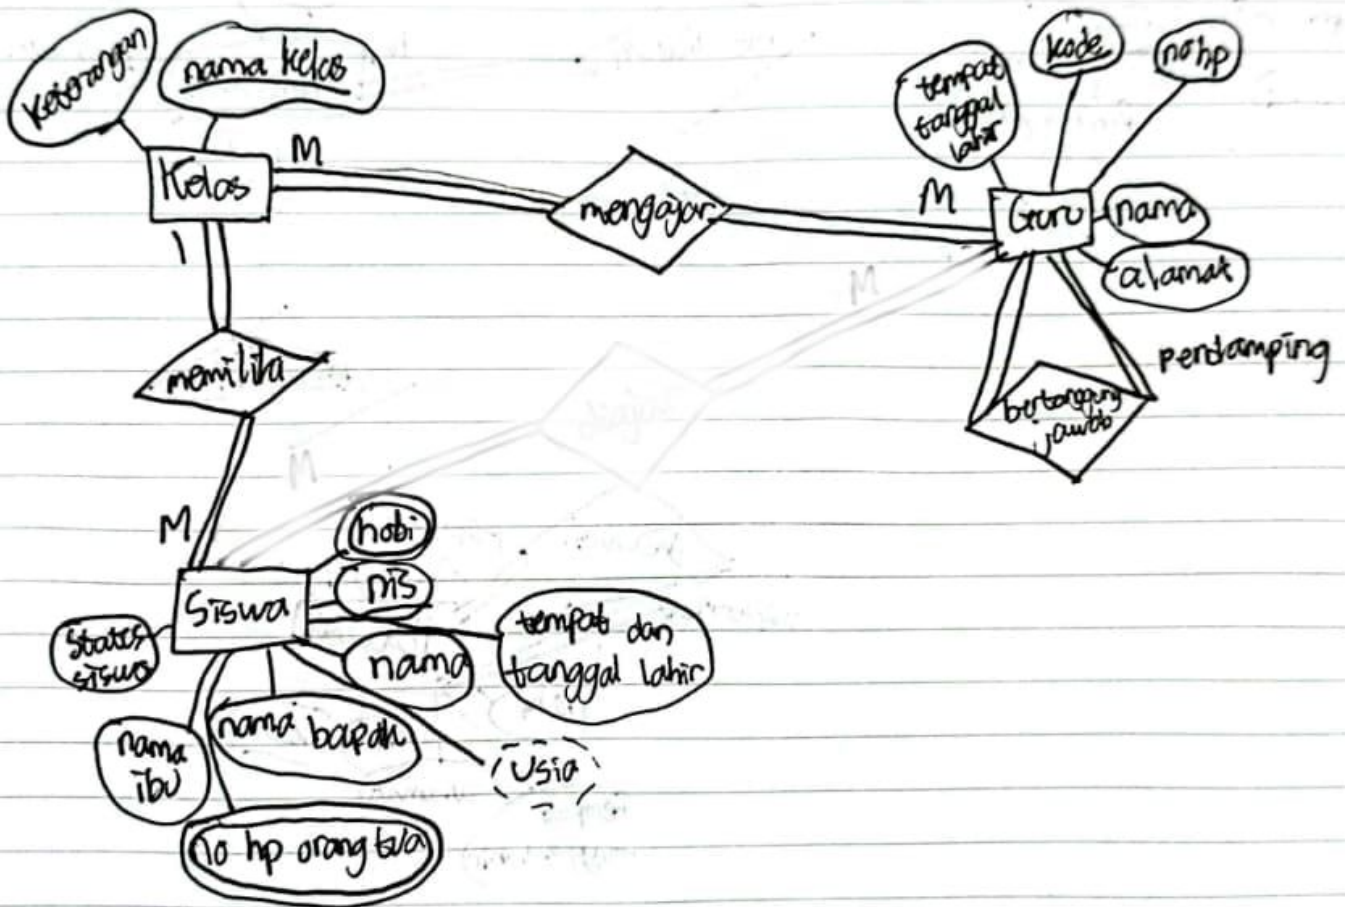 keterangan
nama kelas
Kelas
M
mengajar
M
tempat
tanggal
lahir
kode
no hp
Guru
nama
alamat
pendamping
bertanggung
jawab
1
memiliki
M
M
M
Siswa
hobi
nis
nama
tempat dan
tanggal lahir
status
siswa
nama
ibu
nama bapak
usia
no hp orang tua